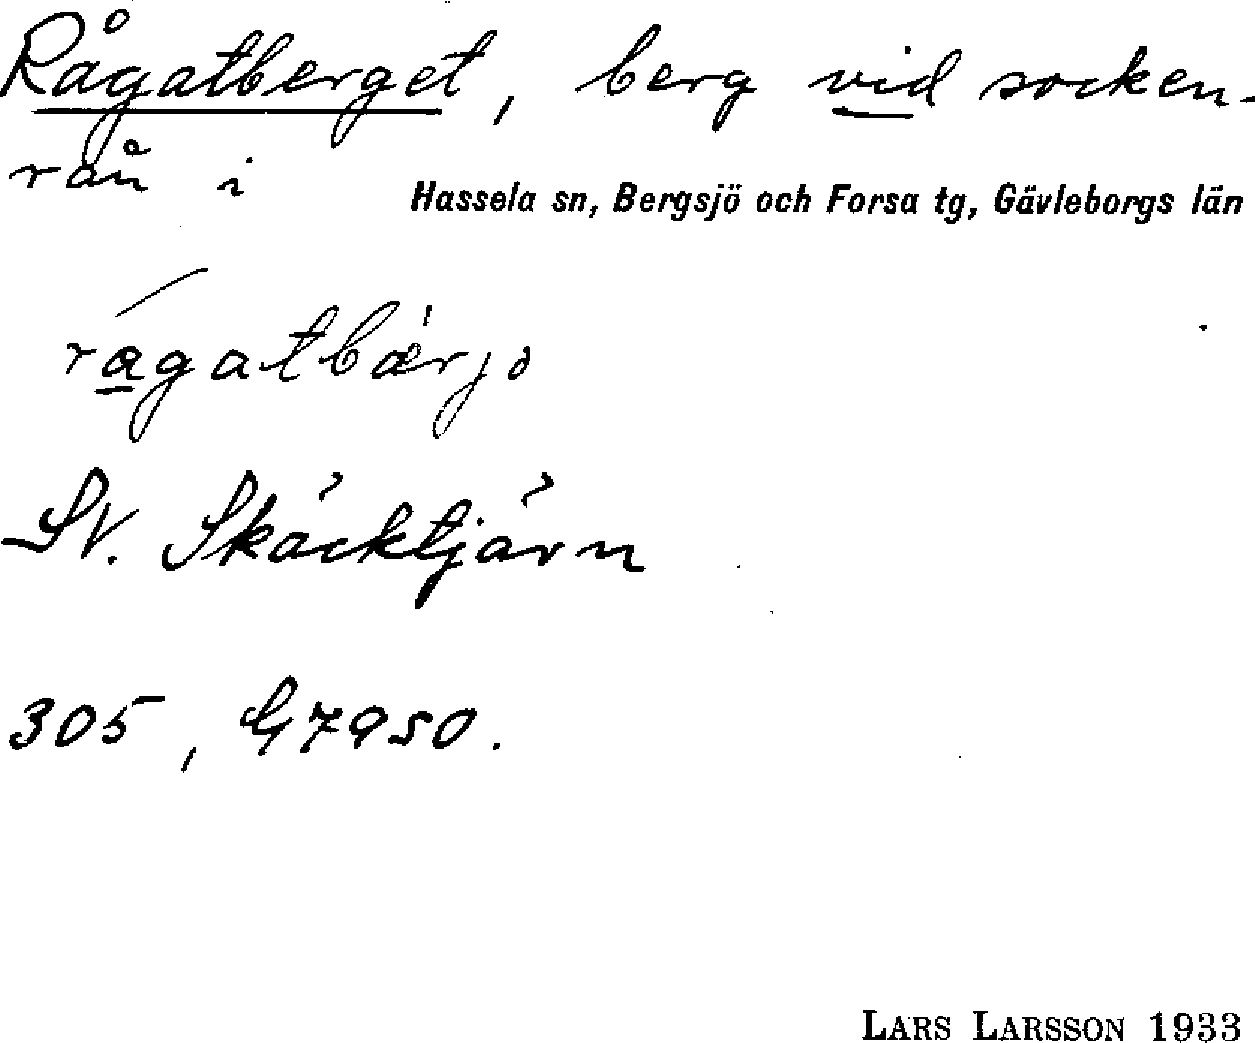 Rågatberget, berg vid socken-
rån i Hassela sn, Bergsjö och Forsa tg, Gävleborgs län
rågatbærjə
SV. Skäcktjärn
305, G7950.
LARS LARSSON 1933